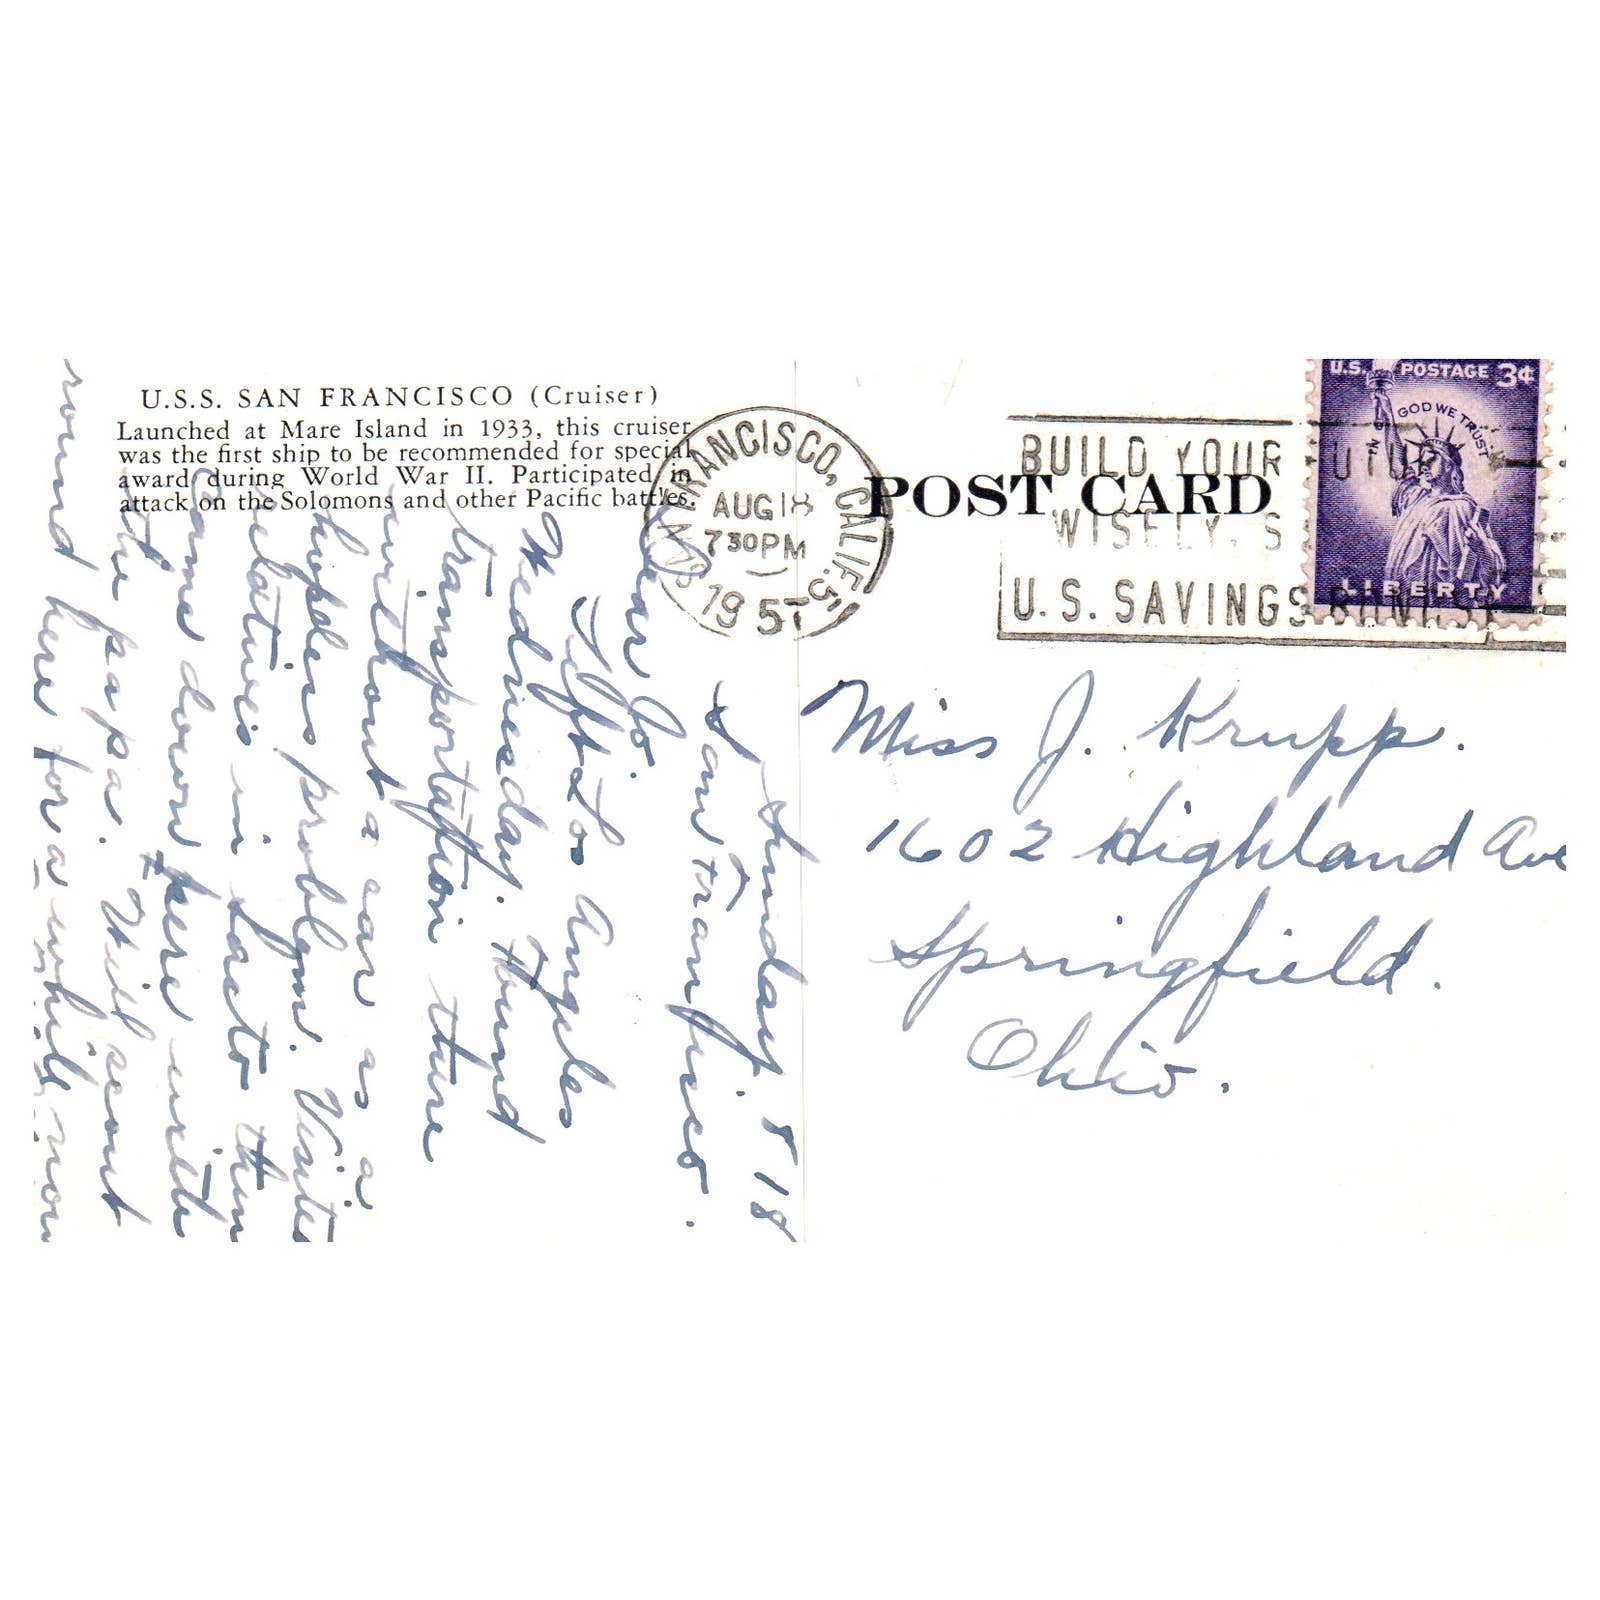 U.S.S. SAN FRANCISCO (Cruiser)
Launched at Mare Island in 1933, this cruiser
was the first ship to be recommended for special
award during World War II. Participated in
attack on the Solomons and other Pacific battles.
SAN FRANCISCO, CALIF.
AUG 18
730PM
195
POST CARD
BUILD YOUR
WISELY, S
U.S. SAVINGS
U.S. POSTAGE 3¢
IN GOD WE TRUST
LIBERTY
Sunday 8 18
San Francisco.
Dear Jo.
Left Los Angeles
Wednesday. Found
transportation here
without a car is a
problem. Visited
relatives in Sacto then
came down here with
the papa. Will scout
round here for a while now
Miss J. Krupp.
1602 Highland Ave
Springfield.
Ohio.